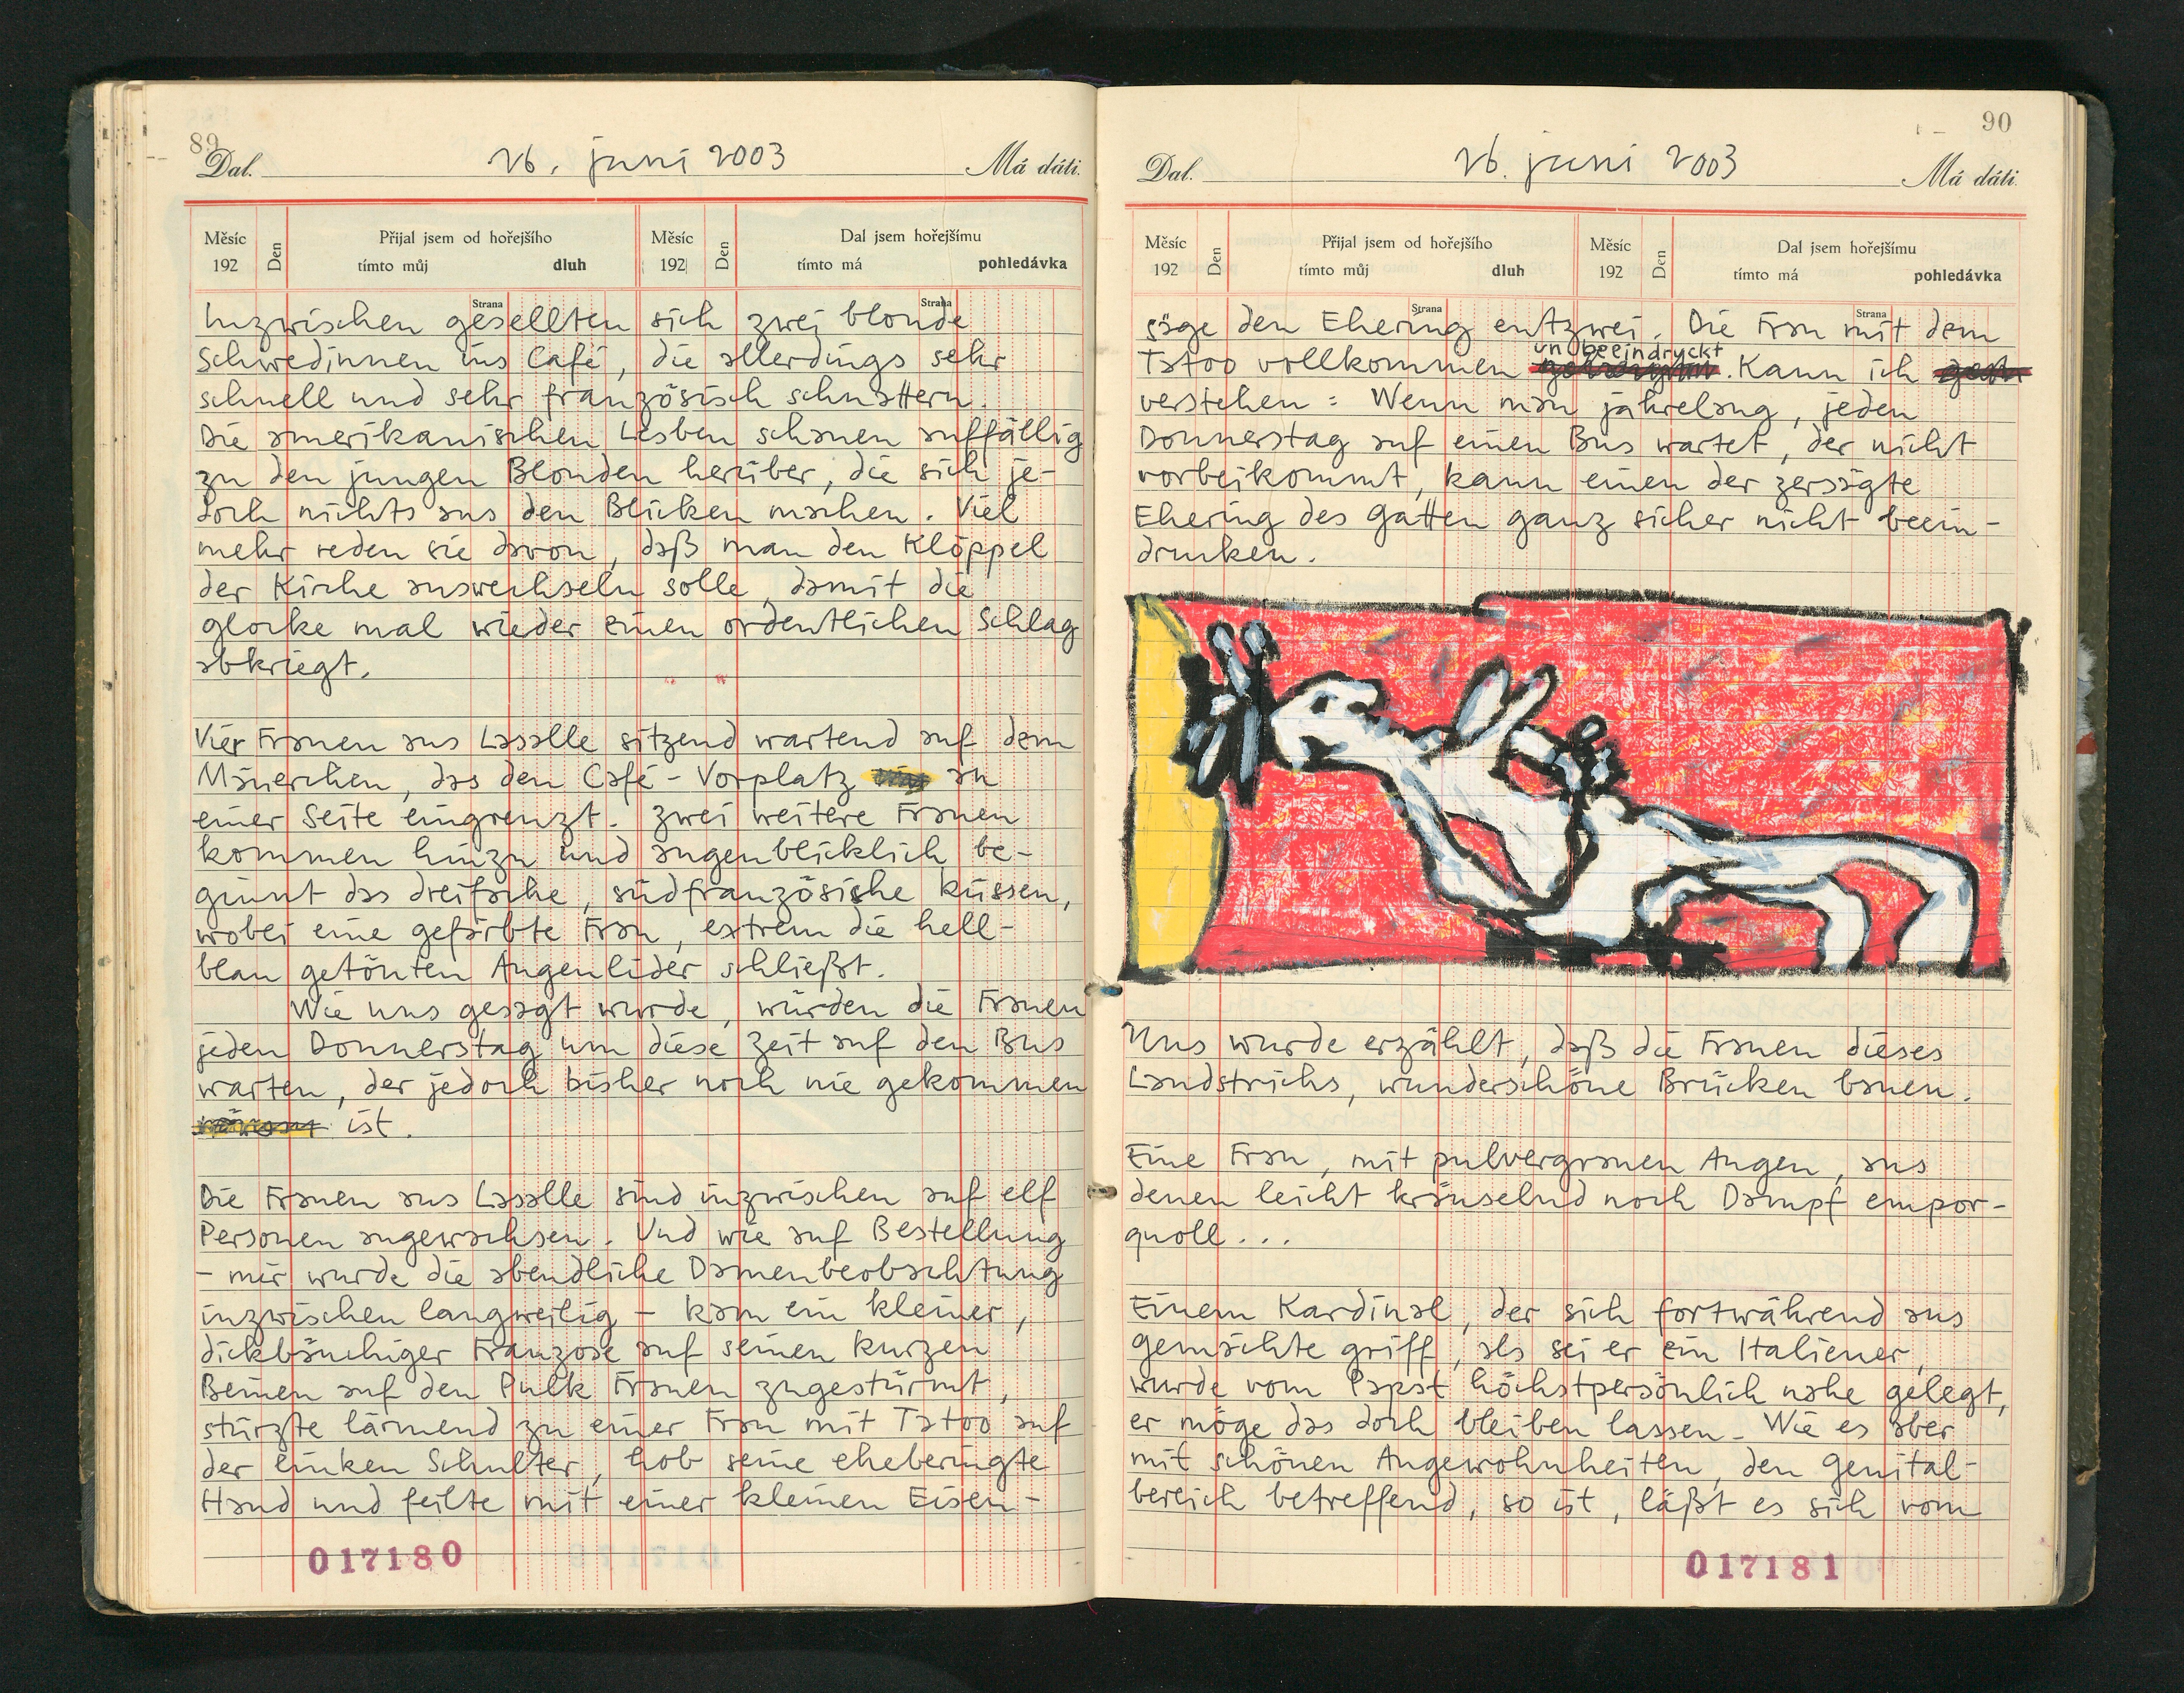 89
Dal. 26. juni 2003 Má dáti.
Měsíc Den Přijal jsem od hořejšího Měsíc Den Dal jsem hořejšímu
192 tímto můj dluh 192 tímto má pohledávka
Strana Strana
Inzwischen gesellten sich zwei blonde
Schwedinnen ins Café, die allerdings sehr
schnell und sehr französisch schnattern.
Die amerikanischen Lesben schauen auffällig
zu den jungen Blonden herüber, die sich je-
doch nichts aus den Blicken machen. Viel
mehr reden sie davon, daß man den Klöppel
der Kirche auswechseln solle, damit die
Glocke mal wieder einen ordentlichen Schlag
abkriegt.
Vier Frauen aus Lasalle sitzend wartend auf dem
Mäuerchen, das den Café-Vorplatz an
einer Seite eingrenzt. Zwei weitere Frauen
kommen hinzu und augenblicklich be-
ginnt das dreifache, südfranzösische küssen,
wobei eine gefärbte Frau, extrem die hell-
blau getönten Augenlider schließt.
Wie uns gesagt wurde, würden die Frauen
jeden Donnerstag um diese Zeit auf den Bus
warten, der jedoch bisher noch nie gekommen
ist.
Die Frauen aus Lasalle sind inzwischen auf elf
Personen angewachsen. Und wie auf Bestellung
- mir wurde die abendliche Damenbeobachtung
inzwischen langweilig - kam ein kleiner,
dickbäuchiger Franzose auf seinen kurzen
Beinen auf den Pulk Frauen zugestürmt,
stürzte lärmend zu einer Frau mit Tatoo auf
der linken Schulter, hob seine eheberingte
Hand und feilte mit einer kleinen Eisen-
017180
90
Dal. 26. juni 2003 Má dáti.
Měsíc Den Přijal jsem od hořejšího Měsíc Den Dal jsem hořejšímu
192 tímto můj dluh 192 tímto má pohledávka
Strana Strana
säge den Ehering entzwei. Die Frau mit dem
Tatoo vollkommen unbeeindruckt. Kann ich
verstehen: Wenn man jahrelang, jeden
Donnerstag auf einen Bus wartet, der nicht
vorbeikommt, kann einen der zersägte
Ehering des Gatten ganz sicher nicht beein-
drucken.
Uns wurde erzählt, daß die Frauen dieses
Landstrichs, wunderschöne Brücken bauen.
Eine Frau, mit pulvergrauen Augen, aus
denen leicht kräuselnd noch Dampf empor-
quoll...
Einem Kardinal, der sich fortwährend ans
Gemächte griff, als sei er ein Italiener,
wurde vom Papst höchstpersönlich nahe gelegt,
er möge das doch bleiben lassen. Wie es aber
mit schönen Angewohnheiten, den Genital-
bereich betreffend, so ist, läßt es sich vom
017181